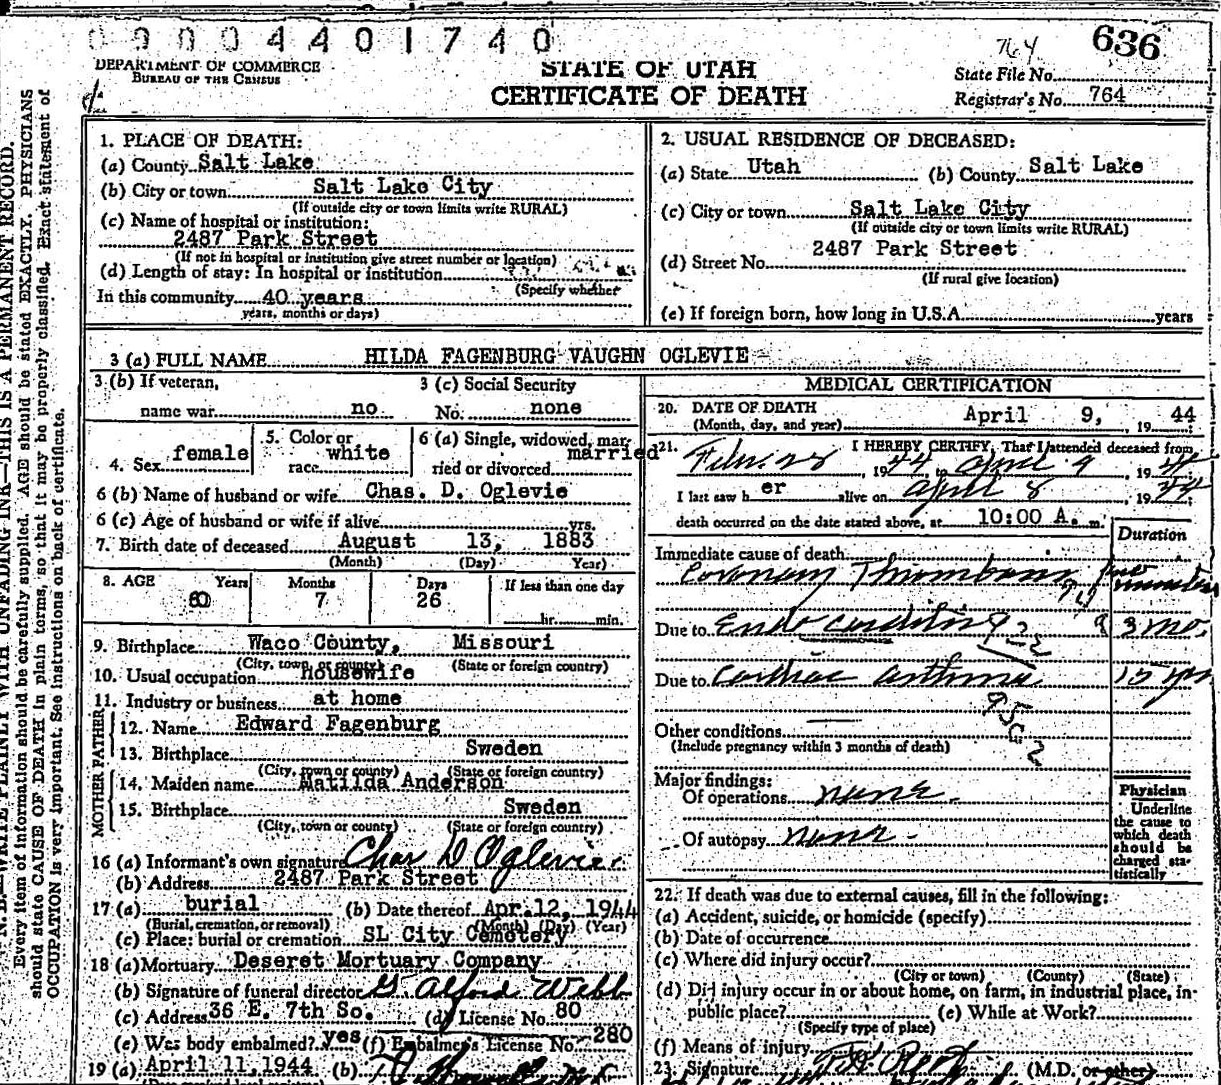 0 0 0 0 4 4 0 1 7 4 0
764 636
DEPARTMENT OF COMMERCE
BUREAU OF THE CENSUS
STATE OF UTAH
CERTIFICATE OF DEATH
State File No.
Registrar's No. 764
N. B.—WRITE PLAINLY WITH UNFADING INK—THIS IS A PERMANENT RECORD.
Every item of information should be carefully supplied. AGE should be stated EXACTLY. PHYSICIANS
should state CAUSE OF DEATH in plain terms, so that it may be properly classified. Exact statement of
OCCUPATION is very important. See instructions on back of certificate.
1. PLACE OF DEATH:
(a) County Salt Lake
(b) City or town Salt Lake City
(If outside city or town limits write RURAL)
(c) Name of hospital or institution:
2487 Park Street
(If not in hospital or institution give street number or location)
(d) Length of stay: In hospital or institution
(Specify whether
In this community 40 years
years, months or days)
2. USUAL RESIDENCE OF DECEASED:
(a) State Utah (b) County Salt Lake
(c) City or town Salt Lake City
(If outside city or town limits write RURAL)
2487 Park Street
(d) Street No.
(If rural give location)
(e) If foreign born, how long in U.S.A. years
3 (a) FULL NAME HILDA FAGENBURG VAUGHN OGLEVIE
3 (b) If veteran,
name war no
3 (c) Social Security
No. none
4. Sex female
5. Color or
race white
6 (a) Single, widowed, mar-
ried or divorced married
6 (b) Name of husband or wife Chas. D. Oglevie
6 (c) Age of husband or wife if alive yrs.
7. Birth date of deceased August 13, 1883
(Month) (Day) (Year)
8. AGE Years Months Days If less than one day
60 7 26 hr. min.
9. Birthplace Waco County, Missouri
(City, town, or county) (State or foreign country)
10. Usual occupation housewife
11. Industry or business at home
FATHER
12. Name Edward Fagenburg
13. Birthplace Sweden
(City, town or county) (State or foreign country)
MOTHER
14. Maiden name Matilda Anderson
15. Birthplace Sweden
(City, town or county) (State or foreign country)
16 (a) Informant's own signature Chas D Oglevie
(b) Address 2487 Park Street
17 (a) burial (b) Date thereof Apr. 12, 1944
(Burial, cremation, or removal) (Month) (Day) (Year)
(c) Place: burial or cremation SL City Cemetery
18 (a) Mortuary Deseret Mortuary Company
(b) Signature of funeral director G Alford Webb
(c) Address 36 E. 7th So. (d) License No. 80
(e) Was body embalmed? yes (f) Embalmer's License No. 280
19 (a) April 11, 1944 (b)
MEDICAL CERTIFICATION
20. DATE OF DEATH April 9, 1944
(Month, day, and year)
21. I HEREBY CERTIFY, That I attended deceased from
February 1944 to April 9 1944
I last saw her alive on April 8 1944
death occurred on the date stated above, at 10:00 A. m.
Duration
Immediate cause of death
Coronary Thrombosis minutes
Due to Endocarditis 3 mo.
922
Due to Cardiac asthma 15 yrs
95c2
Other conditions
(Include pregnancy within 3 months of death)
Major findings:
Of operations none
Of autopsy none
Physician
Underline
the cause to
which death
should be
charged sta-
tistically
22. If death was due to external causes, fill in the following:
(a) Accident, suicide, or homicide (specify)
(b) Date of occurrence
(c) Where did injury occur?
(City or town) (County) (State)
(d) Did injury occur in or about home, on farm, in industrial place, in
public place? (e) While at Work?
(Specify type of place)
(f) Means of injury
23. Signature (M.D. or other)